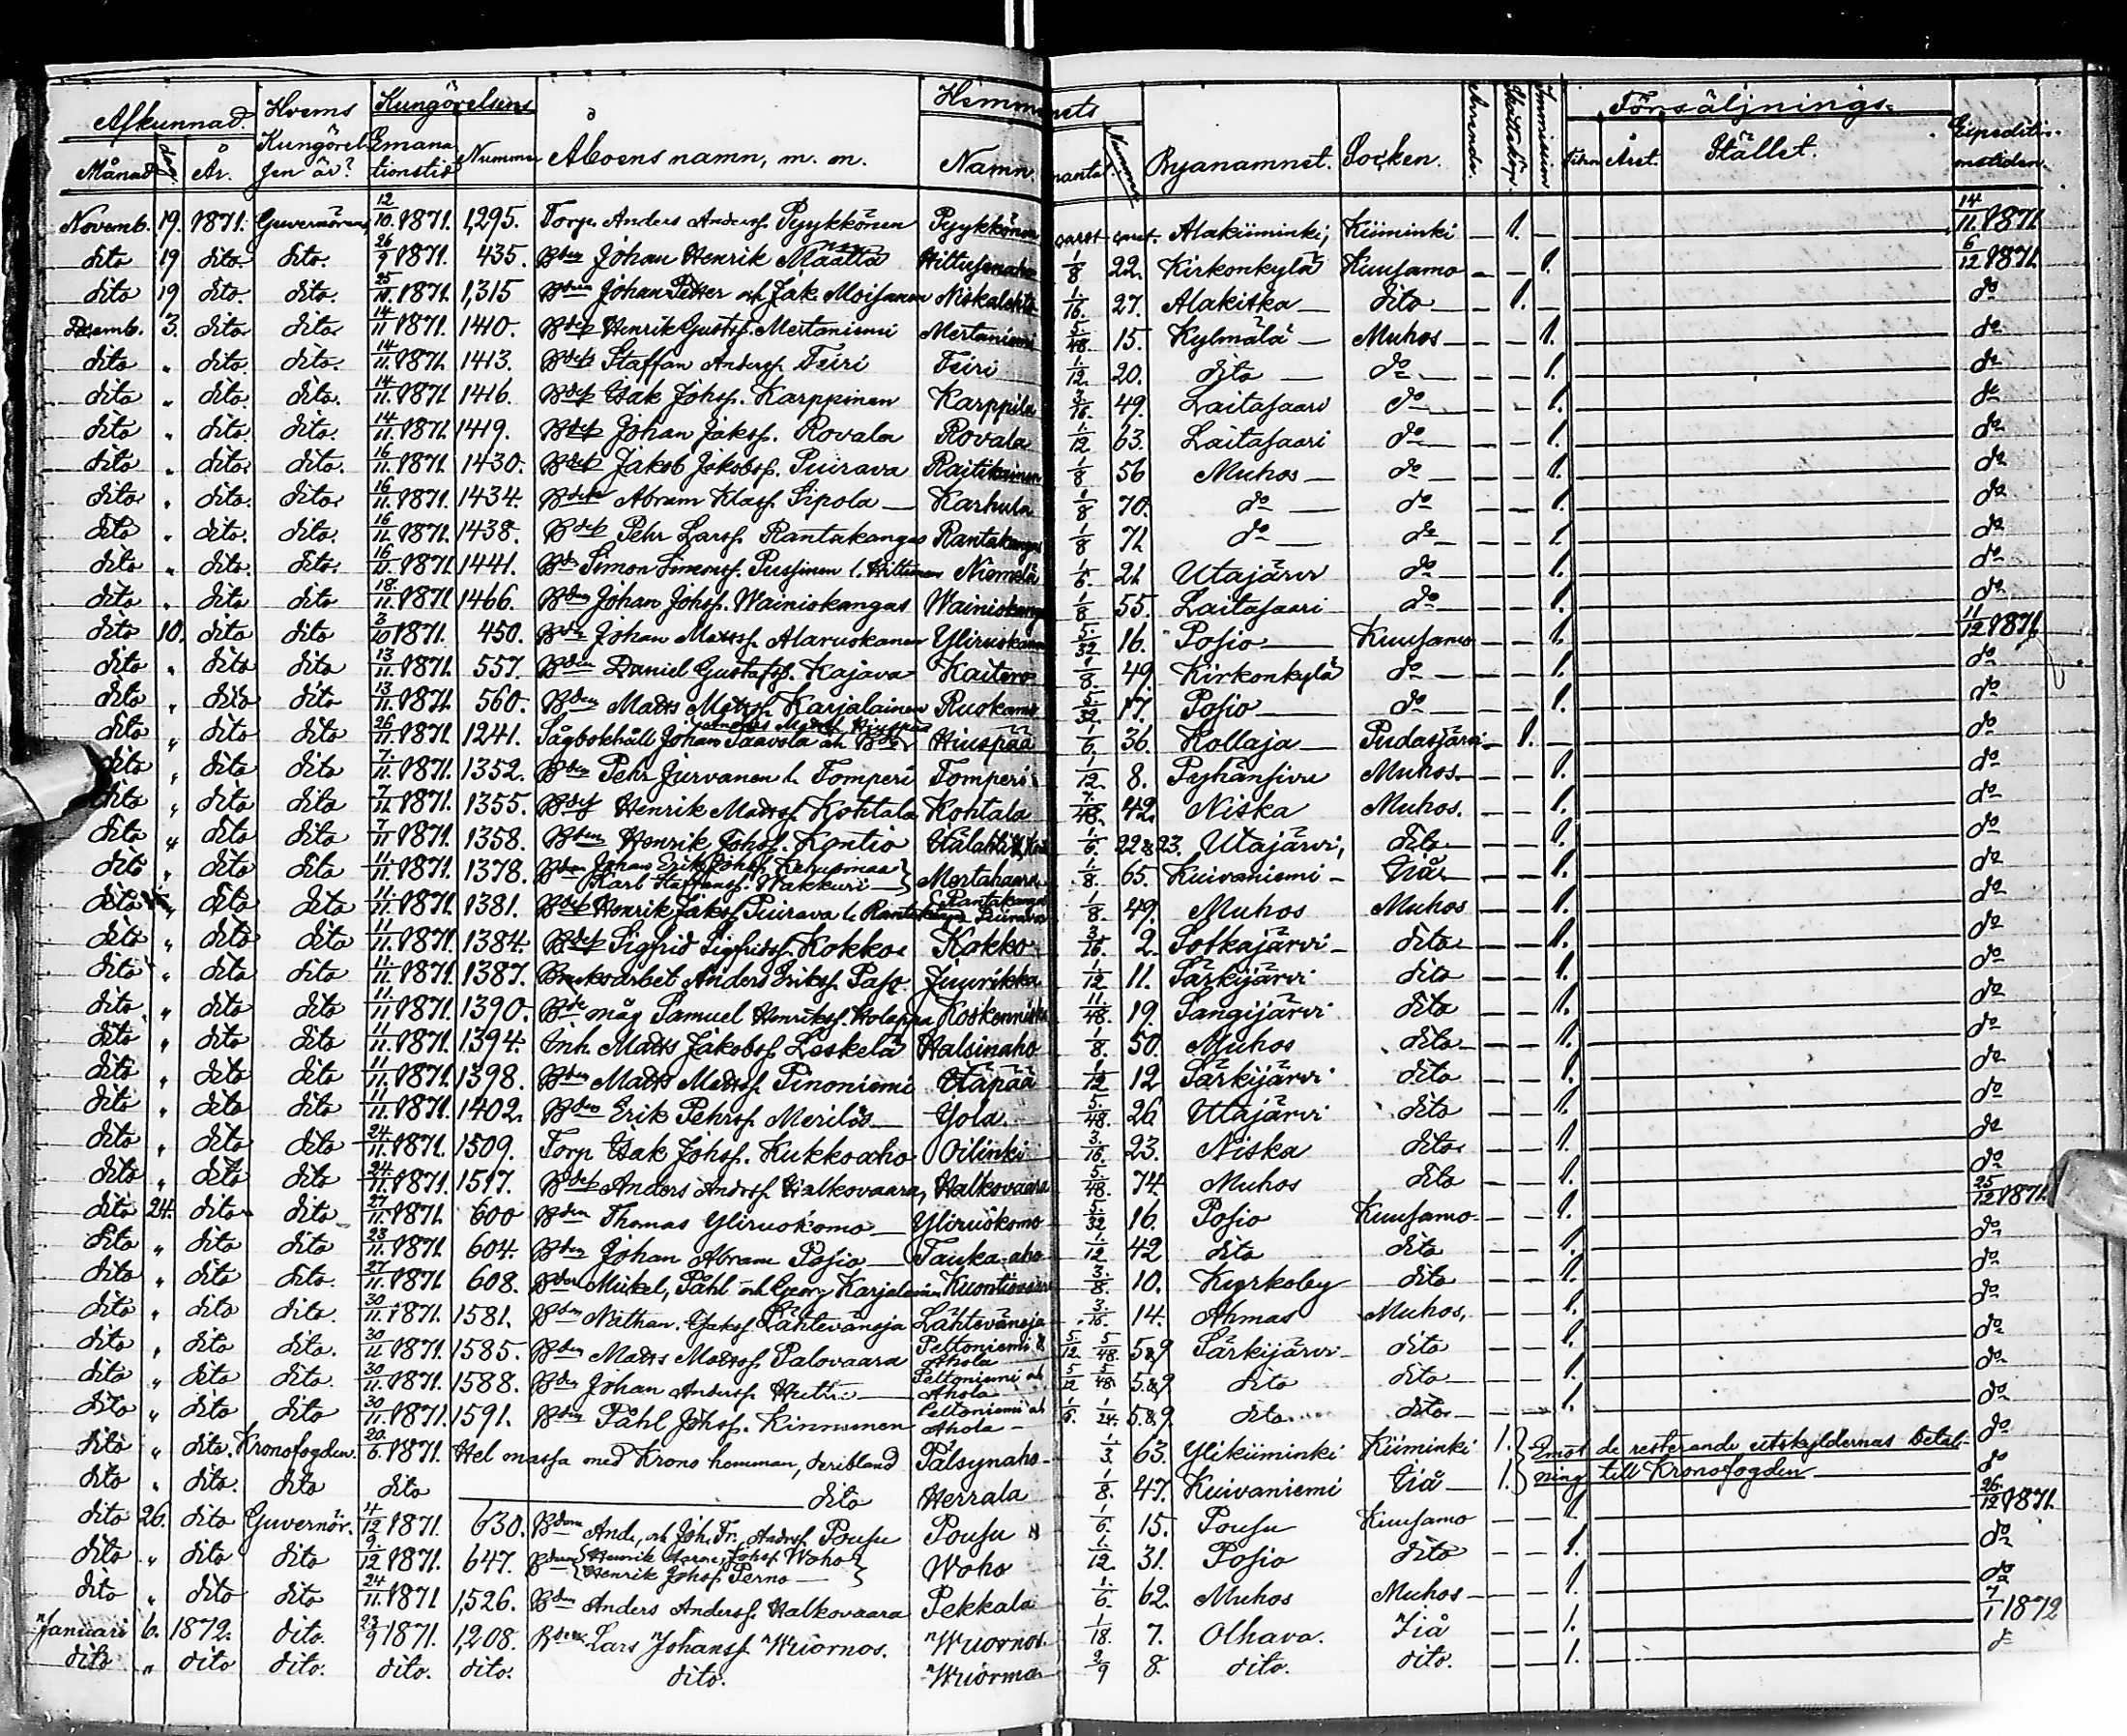 Afkunnad. Hvems Kungörel- sen är? Kungörelsens Åboens namn, m. m. Hemmanets Byanamnet. Socken. Arrende. Skatteköp. Immission Försäljnings- Expeditionstiden.
Månad den År. Emanationstid Nummer Namn. mantal Nummer Året. Stället.
Novemb. 19. 1871. Guvernörens 12/10 1871. 1,295. Torp. Anders Anderss. Pyykkönen Pyykkönen Alakiiminki, Kiiminki — 1. — 14/11 1871.
dito 19 dito. dito. 26/9 1871. 435. Bden Johan Henrik Määttä 1/8 22. Kirkonkylä Kuusamo — — 1. 6/12 1871.
dito 19 dito. dito. 1871. 1,315 Johan Petter och Jak. Moisanen Niskalehto 1/16. 27. Alakitka — dito — 1. — do
Decemb. 3. dito dito. 14/11 1871. 1410. Henrik Gustfs. Mertaniemi Mertaniemi 5/48. 15. Kylmälä — Muhos — — 1. do
dito „ dito. dito. 14/11. 1871. 1413. Staffan Anderss. Feiri Feiri 1/12. 20. dito — do — — 1. do
dito „ dito. dito. 14/11. 1871 1416. Isak Johss. Karppinen Karppila 3/16. 49. Laitasaari do — — 1. do
dito „ dito. dito. 14/11. 1871. 1419. Johan Jakss. Rovala Rovala 1/12 63. Laitasaari do — — 1. do
dito „ dito. dito. 16/11. 1871. 1430. Jakob Jakobss. Puirava Raitikainen 1/8 56 Muhos — do — — 1. do
dito „ dito. dito. 16/11. 1871. 1434. Abram Klass. Sipola — Karhula 1/8 70. do — do — — 1. do
dito „ dito. dito. 16/11. 1871. 1438. Pehr Larss. Rantakangas Rantakangas 1/8 71 do — do — — 1. do
dito „ dito. dito. 16/11. 1871. 1441. Simon Simonss. Pussinen l. Hiltunen Niemelä 1/6. 21. Utajärvi do — — 1. do
dito „ dito dito 18./11. 1871. 1466. Bden Johan Johss. Wainiokangas Wainiokangas 1/8 55. Laitasaari do — — 1. do
dito 10. dito dito 3/10 1871. 450. Johan Mattss. Alaruokanen 5/32 16. Posio — Kuusamo — — 1. 11/12 1871.
dito „ dito dito 13/11. 1871. 557. Bden Daniel Gustafss. Kajava Kaitero 1/8. 49. Kirkonkylä do — — 1. do
dito „ dito dito 13/11. 1871. 560. Bden Matts Mattss. Karjalainen Ruokamo 5/32. 17. Posio — do — — 1. do
dito „ dito dito 26/11. 1871. 1241. Sågbokhåll. Johan Saavola och Hiuspää 1/6. 36. Kollaja — Pudasjärvi — 1. — do
dito „ dito dito 7./11. 1871. 1352. Bden Pehr Jurvanen l. Tomperi Tomperi 1/12 8. Pyhänsivu Muhos. — — 1. do
dito „ dito dito 7/11. 1871. 1355. Henrik Mattss. Kohtala Kohtala 7/48. 42. Niska Muhos. — — 1. do
dito „ dito dito 7/11 1871. 1358. Bden Henrik Johss. Kontio 1/6. 22&23. Utajärvi, dito — — 1. do
dito „ dito dito 11./11. 1871. 1378. Bden Johan Erik Johss. Karl Staffanss. Wakkuri } 1/8. 65. Kuivaniemi — Iiå — — 1. do
dito „ dito dito 11./11. 1871. 1381. Henrik Jakss. Puirava l. Rantakangas Rantakangas l. Puirava 1/8. 49. Muhos Muhos — — 1. do
dito „ dito dito 11/11. 1871. 1384. Sigfrid Sigfridss. Kokko Kokko 3/16. 2. Sotkajärvi — dito — — 1. do
dito „ dito dito 11./11. 1871. 1387. Anders Erikss. Paso Juurikka 1/12 11. Särkijärvi dito — — 1. do
dito „ dito dito 11/11 1871. 1390. måg Samuel Henrikss. Holappa Koskenniska 11./48. 19. Sangijärvi dito — — 1. do
dito „ dito dito 11/11. 1871. 1394. Inh. Matts Jakobss. Leskelä Halsinaho 1/8. 50. Muhos dito — — 1. do
dito „ dito dito 11/11. 1871. 1398. Bden Matts Mattss. Pinoniemi 1/12 12 Särkijärvi dito — — 1. do
dito „ dito dito 11/11. 1871. 1402. Bden Erik Pehrss. Merilä — Yola. 5./48. 26 Utajärvi dito — — 1. do
dito „ dito dito 24./11. 1871. 1509. Torp. Isak Johss. Kukkoaho Oilinki 3./16. 23. Niska dito — — 1. do
dito „ dito dito 24./11. 1871. 1517. Anders Andrss. Halkovaara, Halkovaara 5/48. 74. Muhos dito — — 1. do
dito 24. dito dito 27/11. 1871. 600 Bden Thomas Yliruokomo — Yliruokomo 5/32 16. Posio Kuusamo — — 1. 25/12 1871.
dito „ dito dito 23/11. 1871. 604. Bden Johan Abram Posio — Tauka-aho 1./12 42 dito dito — — 1. do
dito „ dito dito. 27/11. 1871. 608. Bden Mickel, Påhl och Georg Karjalainen 3./8. 10. Kyrkoby dito — — 1. do
dito „ dito dito. 30/11. 1871. 1581. Bden Nathan. Isakss. Lähtevänoja Lähtevänoja 3./16. 14. Ahmas Muhos. — — 1. do
dito „ dito dito. 30/11. 1871. 1585. Bden Matts Mattss. Palovaara Peltoniemi & Ahola 5/12. 5/48. 5&9 Särkijärvi — dito — — 1. do
dito „ dito dito. 30/11. 1871. 1588. Bden Johan Anderss. Peltoniemi och Ahola 5/12 5/48. 5.&9. dito dito — — 1. do
dito „ dito dito 30/11. 1871. 1591. Bden Påhl Johss. Kinnunen Peltoniemi och Ahola — 1/6. 1/24. 5.&9. dito dito — — 1. do
dito „ dito. Kronofogden. 20./6. 1871. Hel massa med Krono hemman, deribland Palsynaho — 1/3. 63. Ylikiiminki Kiiminki 1. } Emot de resterande utskyldernas betal- do
dito „ dito. dito dito — dito Herrala 1/8. 47. Kuivaniemi Iiå — 1. } ning till Kronofogden — do
dito 26. dito Guvernör. 4/12 1871. 630. Bden And. och Joh. Fr. Andrss. Pousu Pousu 1/6. 15. Pousu Kuusamo — — 1. 26./12 1871.
dito „ dito dito 9./12 1871. 647. Bden { Henrik Johss. Woho Henrik Johss. Perno — } Woho 1./12. 31. Posio dito — — 1. do
dito „ dito dito 24/11. 1871 1,526. Bden Anders Anderss. Halkovaara Pekkala 1./6. 62. Muhos Muhos — — 1. do
Januari 6. 1872. dito. 23/9 1871. 1,208. Bden Lars Johanss. Wuornos. Wuornos. 1/18. 7. Olhava. Iiå — 1. 7/1 1872
dito „ dito dito. dito. dito. dito. Wuorma 2/9 8. dito. dito. — — 1. do